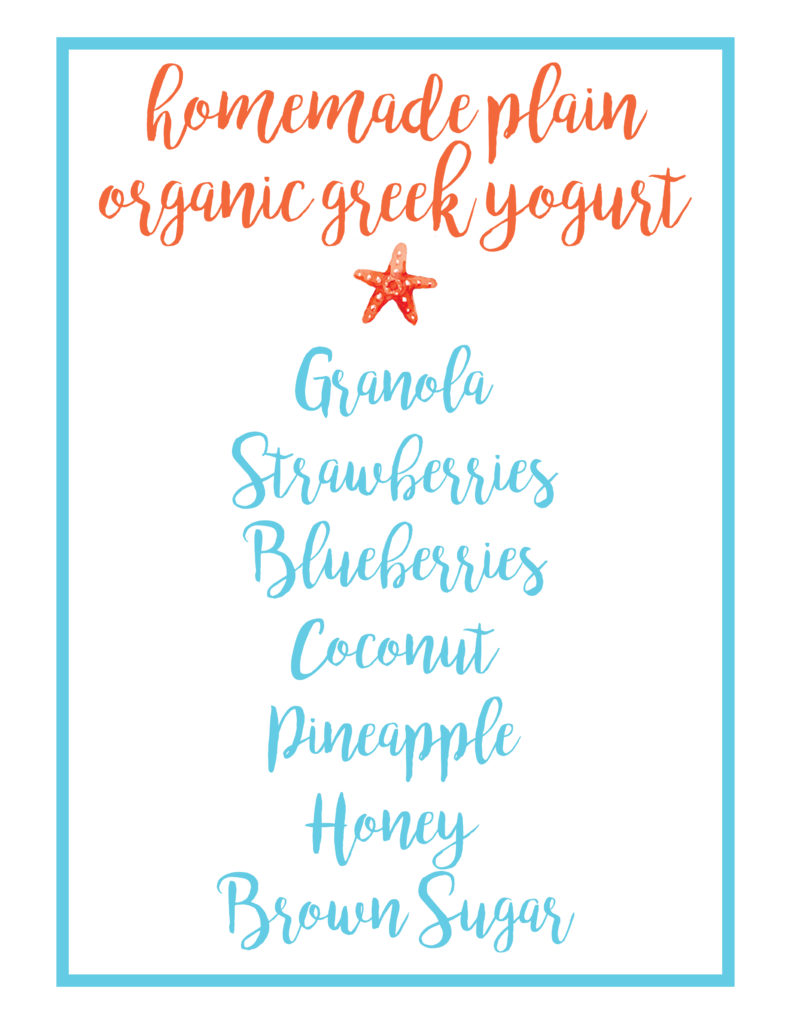 homemade plain
organic greek yogurt
Granola
Strawberries
Blueberries
Coconut
Pineapple
Honey
Brown Sugar